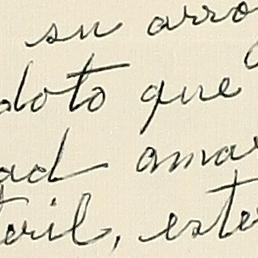 su arro
doto que
ad amar
teril, este